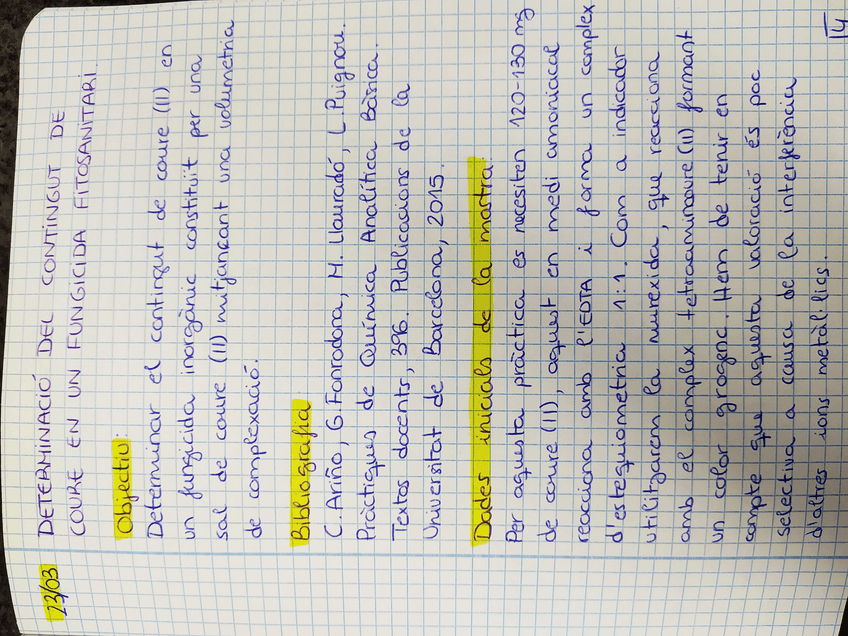 23/03
DETERMINACIÓ DEL CONTINGUT DE
COURE EN UN FUNGICIDA FITOSANITARI.
Objectiu:
Determinar el contingut de coure (II) en
un fungicida inorgànic constituït per una
sal de coure (II) mitjançant una volumetria
de complexació.
Bibliografia
C. Ariño, G. Fonrodona, M. Llauradó, L. Puignou.
Pràctiques de Química Analítica Bàsica.
Textos docents, 396. Publicacions de la
Universitat de Barcelona, 2015.
Dades inicials de la mostra.
Per aquesta pràctica es necesiten 120-130 mg
de coure (II), aquest en medi amoniacal
reacciona amb l'EDTA i forma un complex
d'estequiometria 1:1. Com a indicador
utilitzarem la murexida, que reacciona
amb el complex tetraaminoure (II) formant
un color grogenc. Hem de tenir en
compte que aquesta valoració és poc
selectiva a causa de la interferència
d'altres ions metàl·lics.
14